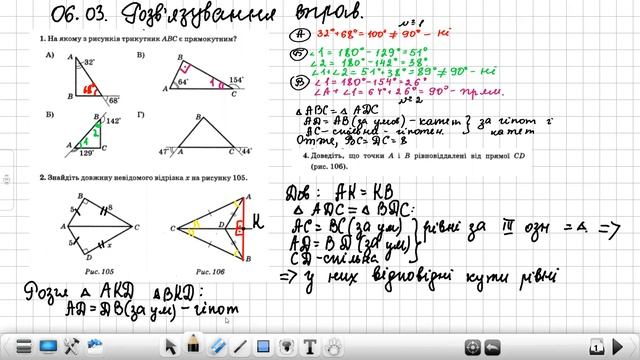 06.03. Розв'язування вправ.
1. На якому з рисунків трикутник ABC є прямокутним?
А) A 32° 68° B 68°
В) B 64° A 1 154° C
Б) B 142° 2 1 A 129° C
Г) B 47° A C 44°
2. Знайдіть довжину невідомого відрізка x на рисунку 105.
B 8 5 A C 5 x D
Рис. 105
A C D K B
Рис. 106
№ 1
А 32° + 68° = 100° ≠ 90° - ні
Б ∠1 = 180° - 129° = 51°
∠2 = 180° - 142° = 38°
∠1 + ∠2 = 51° + 38° = 89° ≠ 90° - ні
В ∠1 = 180° - 154° = 26°
∠A + ∠1 = 64° + 26° = 90° - прям.
№ 2
△ ABC = △ ADC
AD = AB (за умов) - катет } за гіпот і
AC - спільна - гіпотен. } катет
Отже, BC = DC = 8
4. Доведіть, що точки A і B рівновіддалені від прямої CD
(рис. 106).
Дов: AK = KB
△ ADC = △ BDC:
AC = BC (за ум) } рівні за III озн = △ =>
AD = BD (за ум)
CD - спільна
=> у них відповідні кути рівні
Розгл △ AKD △ BKD:
AD = DB (за ум) - гіпот